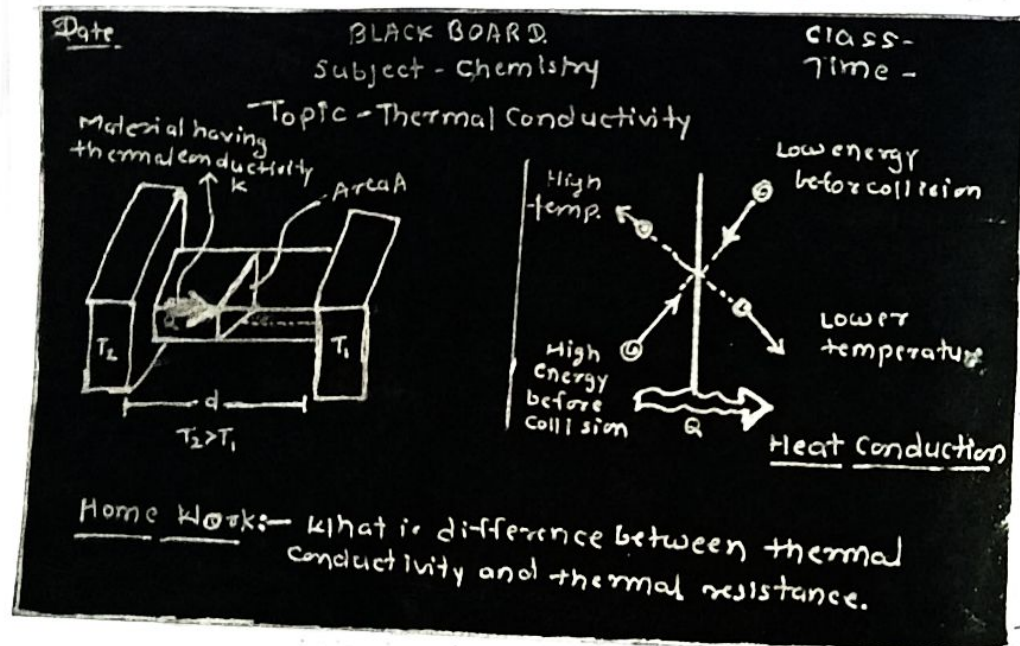 Date.
BLACK BOARD.
Class-
Subject - Chemistry
Time -
Topic - Thermal Conductivity
Material having
thermal conductivity
k
Area A
T2
T1
d
T2>T1
High
temp.
Low energy
before collision
High
energy
before
collision
Lower
temperature
Q
Heat Conduction
Home Work:- What is difference between thermal
conductivity and thermal resistance.